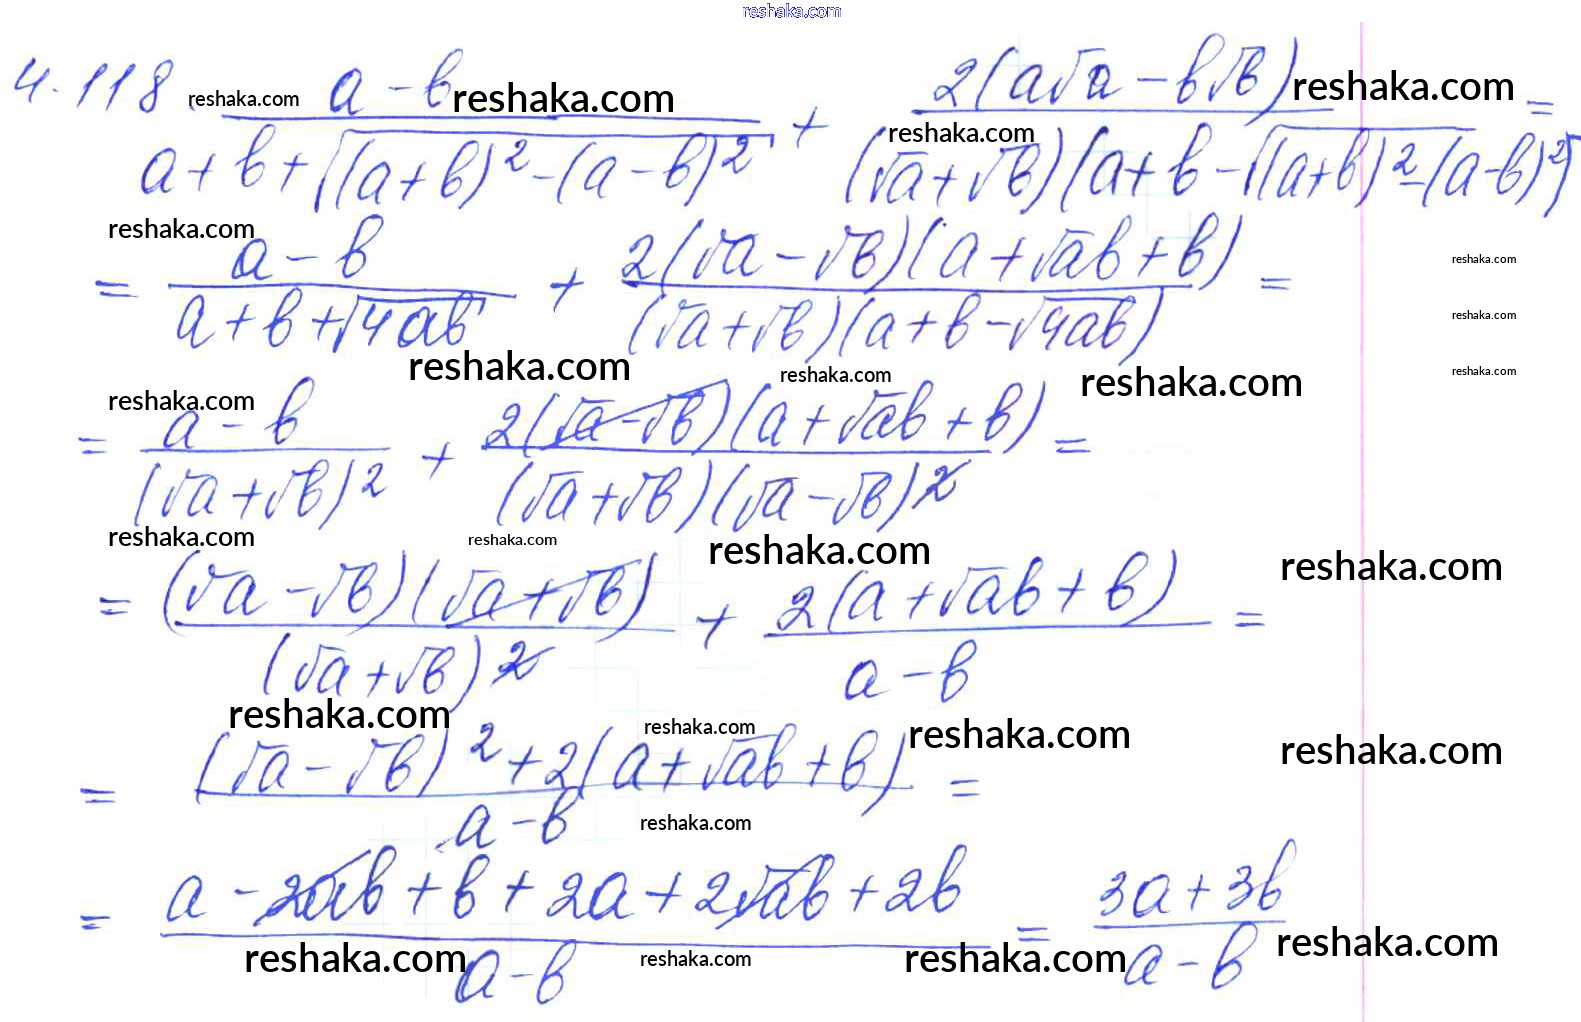 reshaka.com
4.118 reshaka.com a - b reshaka.com + 2(a√a - b√b) reshaka.com =
a + b + √((a+b)² - (a-b)²) reshaka.com (√a + √b)(a + b - √((a+b)² - (a-b)²))
reshaka.com
= a - b / a + b + √4ab + 2(√a - √b)(a + √ab + b) / (√a + √b)(a + b - √4ab) = reshaka.com
reshaka.com
reshaka.com reshaka.com reshaka.com reshaka.com
reshaka.com
= a - b / (√a + √b)² + 2(√a - √b)(a + √ab + b) / (√a + √b)(√a - √b)² =
reshaka.com reshaka.com reshaka.com reshaka.com
= (√a - √b)(√a + √b) / (√a + √b)² + 2(a + √ab + b) / a - b =
reshaka.com reshaka.com reshaka.com reshaka.com
= (√a - √b)² + 2(a + √ab + b) / a - b =
reshaka.com
= a - 2√ab + b + 2a + 2√ab + 2b / a - b = 3a + 3b / a - b
reshaka.com reshaka.com reshaka.com reshaka.com